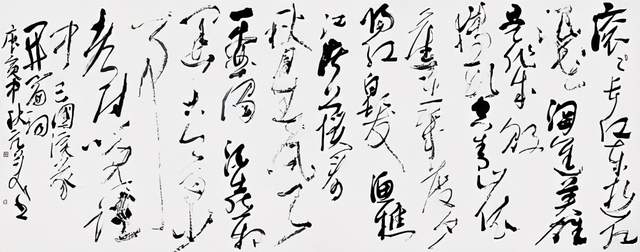 滚滚长江东逝水
浪花淘尽英雄
是非成败
转头空青山依
旧在几度夕
阳红白发渔樵
江渚上惯看
秋月春风
一壶浊酒喜相
逢古今多少
事
都付笑谈
中三國演義
開篇词
庚寅中秋